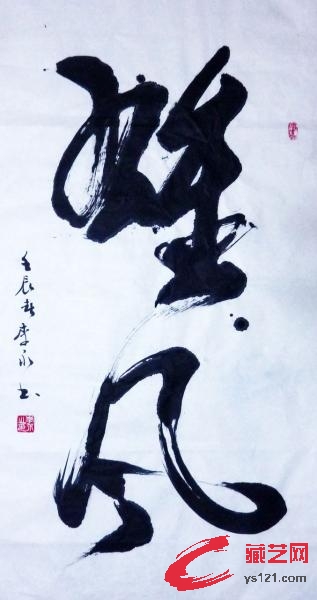 雄风
壬辰春李永书
藏艺网
ys121.com